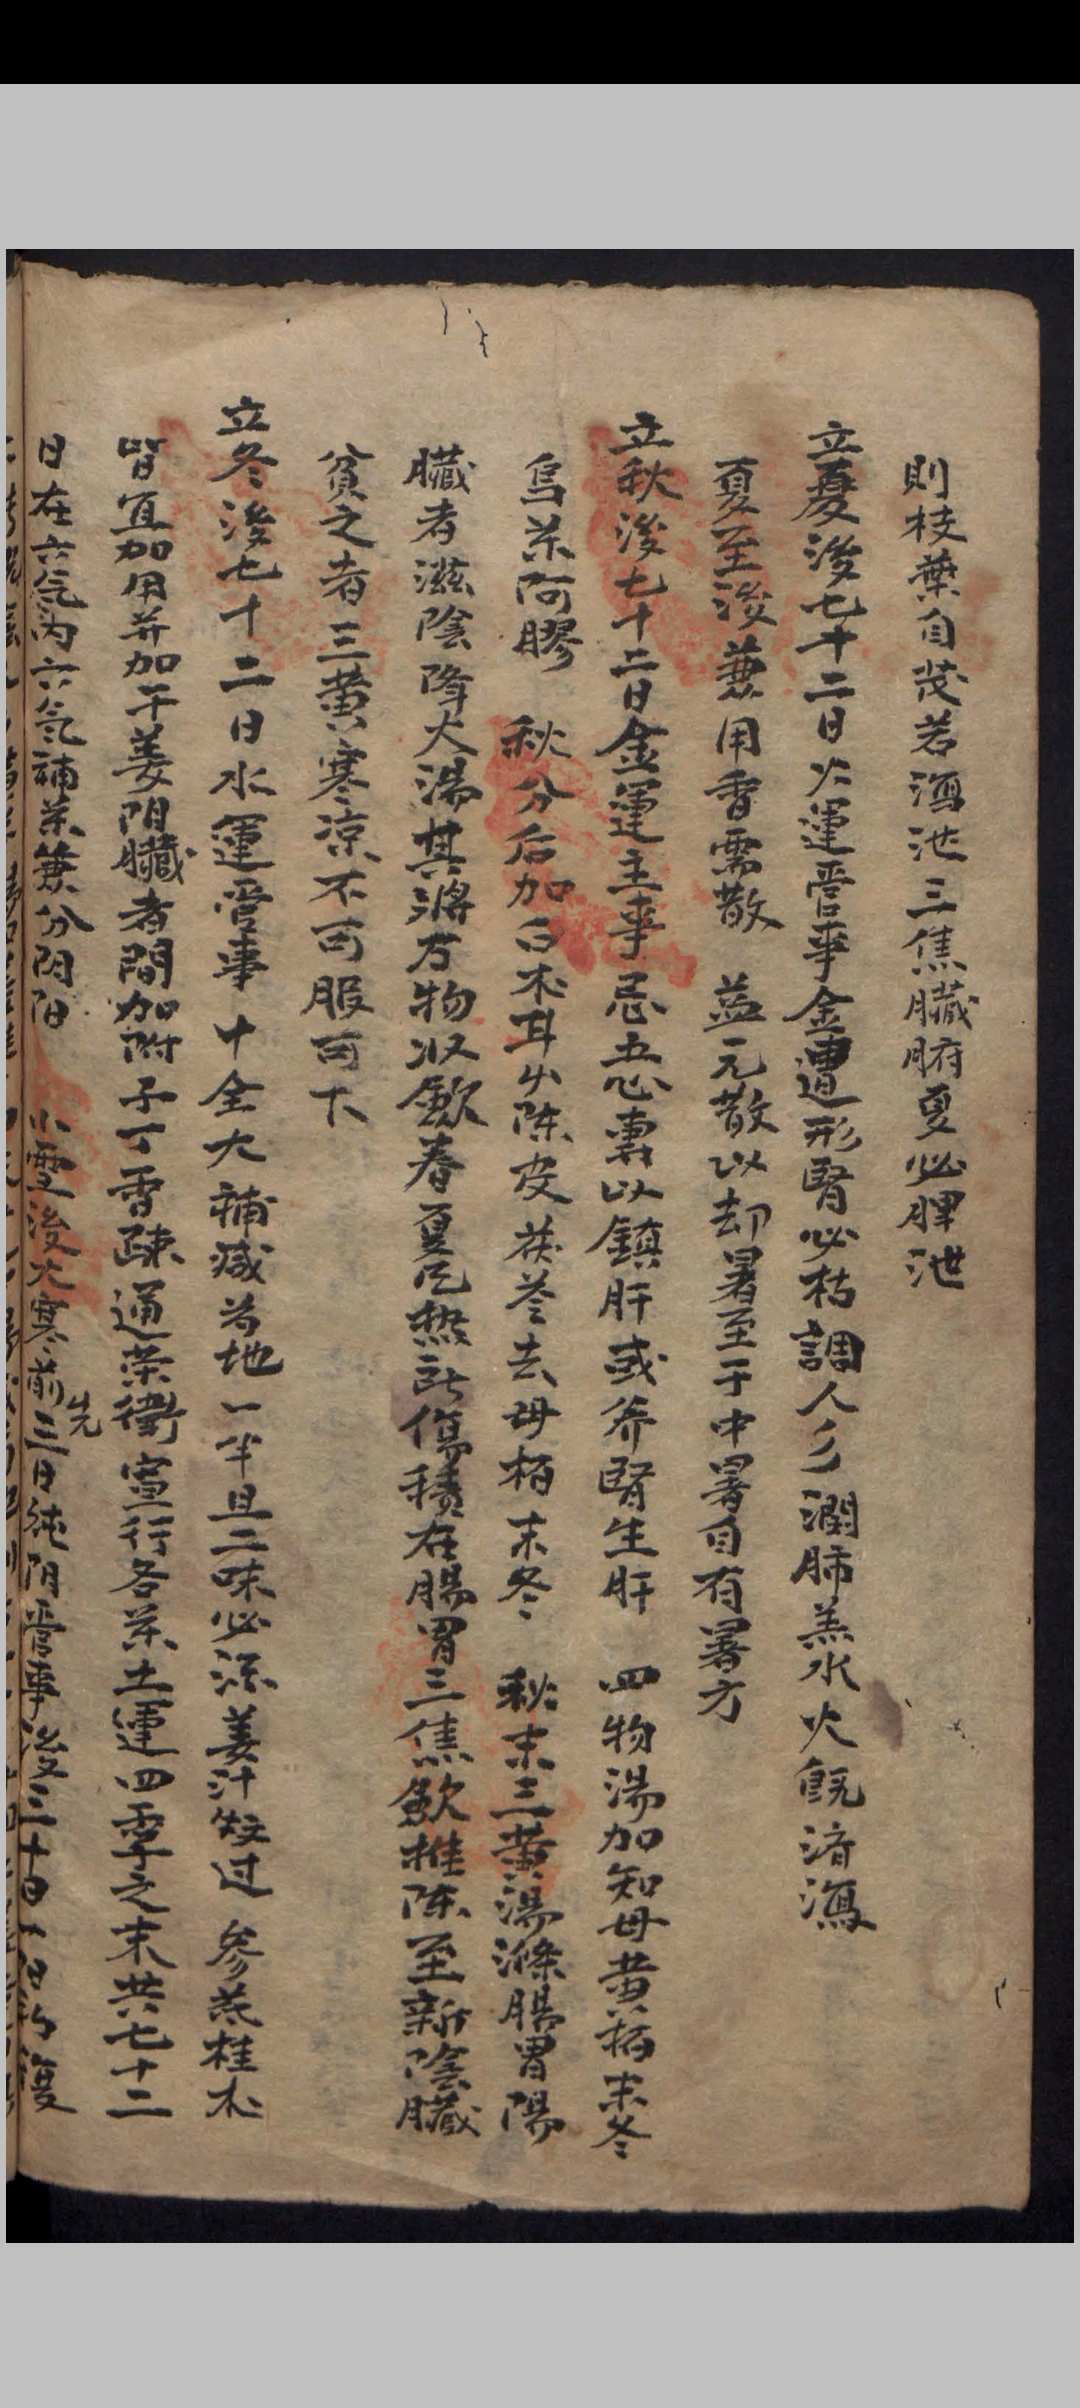 則枝葉自茂若酒池三焦臟腑夏必脾泄
立夏後七十二日火運管事金遭形腎必枯調人多潤肺羔水火既済瀉
夏至後兼用香需散 益元散以却暑至于中暑自有暑方
立秋後七十二日金運主事忌五心專以鎮肝或养腎生肝 四物湯加知母黄栢末冬
烏茶阿膠 秋分后加白术耳少陈皮茯苓去母栢末冬 秋末三黄湯滌腸胃陽
臟者滋陰降火湯其將万物收歛春夏 热 傷積在腸胃三焦歛推陈至新陰臟
貧之者三黄寒凉不可服可下
立冬後七十二日水運管事 十全大補减芍地一半且二味必添姜汁炒过 参芪桂朮
皆宜加用并加干姜阴臟者間加附子丁香疎通荣衛宣行各茶土運四季之末共七十二
日在六気內六気補茶兼分阴阳 小雪後大寒前先三日純阴管事後三十日一阳初復